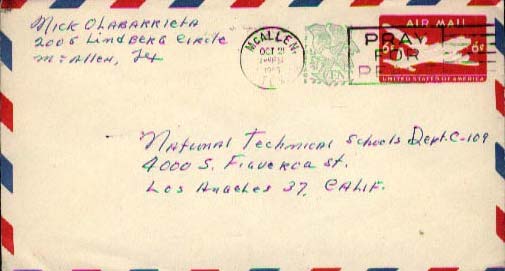 Nick Olabarrieta
2006 Lindberg Circle
McAllen, Tex
McALLEN.
OCT
PRAY
FOR
AIR MAIL
6¢ 6¢
UNITED STATES OF AMERICA
National Technical Schools Dept. C-109
4000 S. Figueroa st.
Los Angeles 37, CALIF.